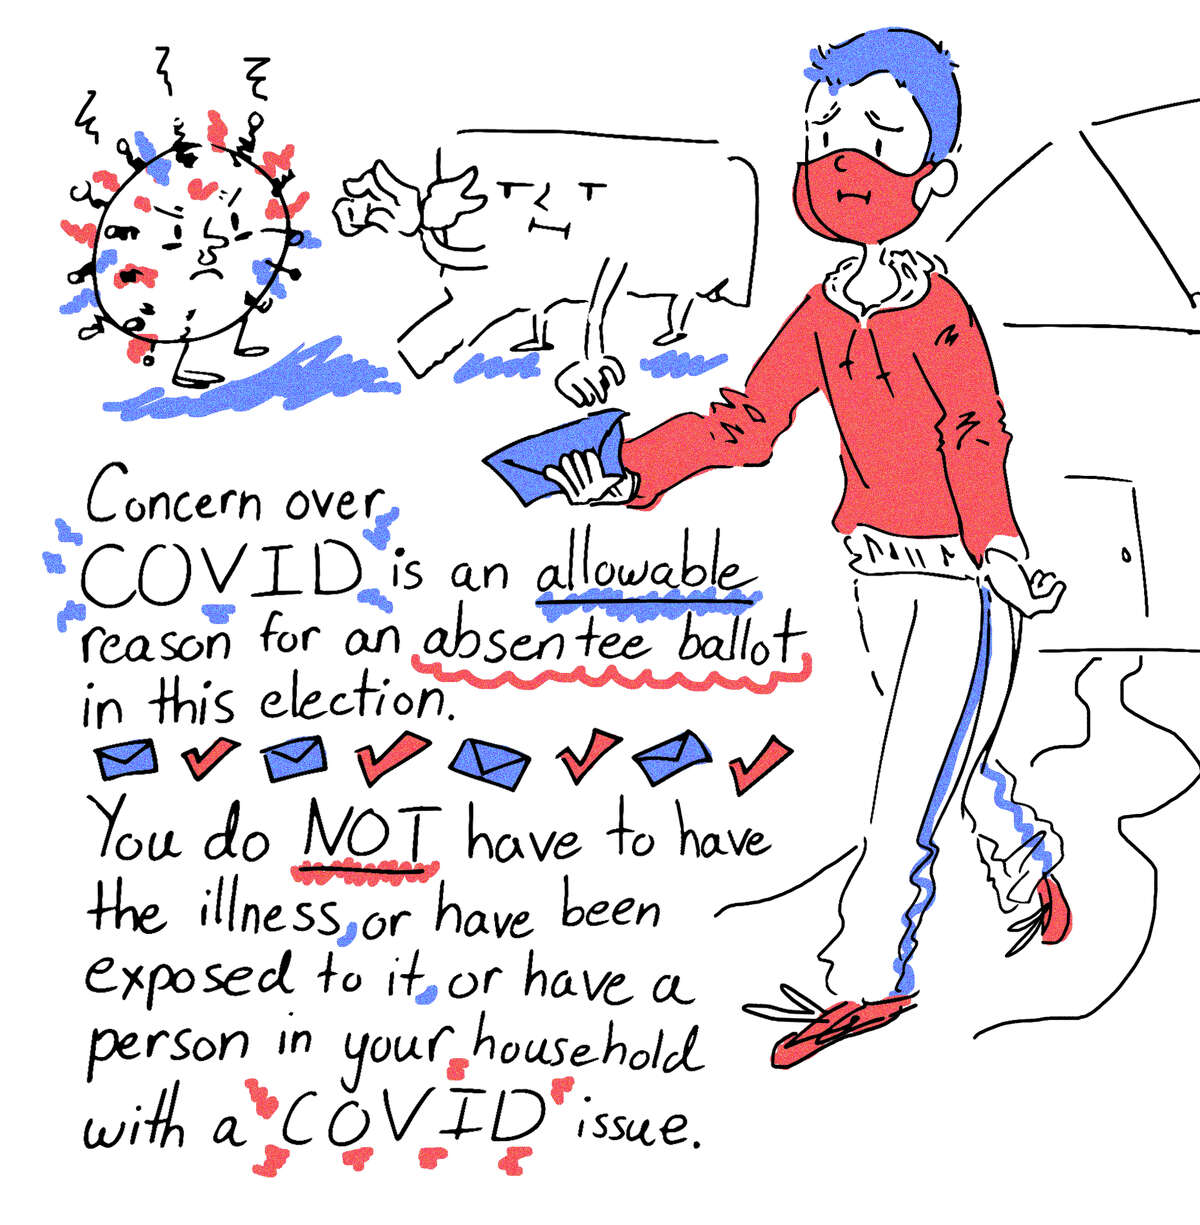 Concern over
COVID is an allowable
reason for an absentee ballot
in this election.
You do NOT have to have
the illness, or have been
exposed to it, or have a
person in your household
with a COVID issue.